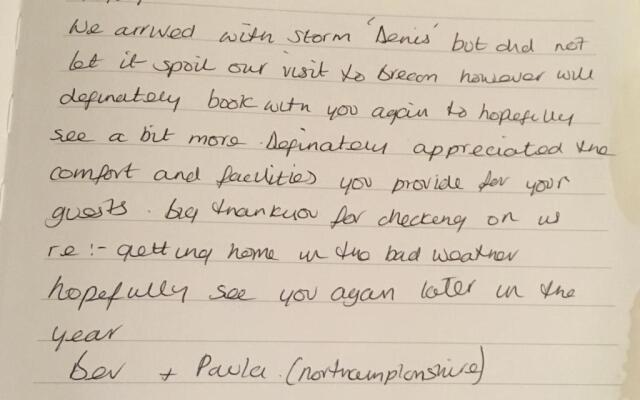 We arrived with storm 'Denis' but did not
let it spoil our visit to brecon however will
definately book with you again to hopefully
see a bit more. Definately appreciated the
comfort and facilities you provide for your
guests. big thankyou for checking on us
re:- getting home in the bad weather
hopefully see you again later in the
year
bev + Paula. (northamptonshire)